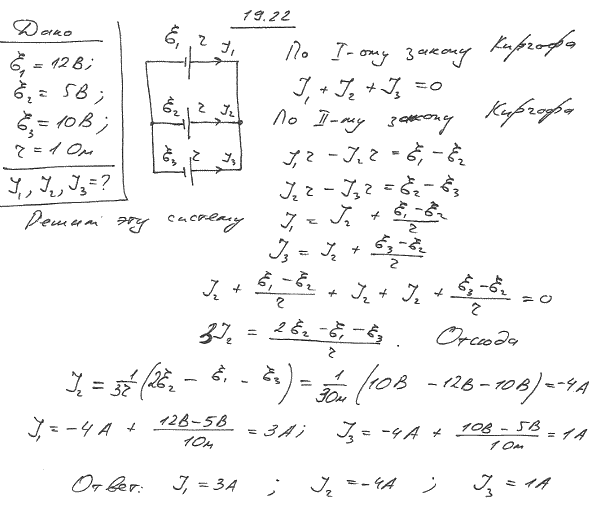 19.22
Дано
ℰ₁ = 12В;
ℰ₂ = 5В;
ℰ₃ = 10В;
r = 1 Ом
J₁, J₂, J₃ = ?
ℰ₁ r J₁
ℰ₂ r J₂
ℰ₃ r J₃
По I-ому закону Киргофа
J₁ + J₂ + J₃ = 0
По II-му закону Киргофа
J₁r − J₂r = ℰ₁ − ℰ₂
J₂r − J₃r = ℰ₂ − ℰ₃
Решим эту систему
J₁ = J₂ + (ℰ₁ − ℰ₂)/r
J₃ = J₂ + (ℰ₃ − ℰ₂)/r
J₂ + (ℰ₁ − ℰ₂)/r + J₂ + J₂ + (ℰ₃ − ℰ₂)/r = 0
3J₂ = (2ℰ₂ − ℰ₁ − ℰ₃)/r . Отсюда
J₂ = 1/3r (2ℰ₂ − ℰ₁ − ℰ₃) = 1/3Ом (10В − 12В − 10В) = −4А
J₁ = −4А + (12В − 5В)/1Ом = 3А; J₃ = −4А + (10В − 5В)/1Ом = 1А
Ответ: J₁ = 3А ; J₂ = −4А ; J₃ = 1А